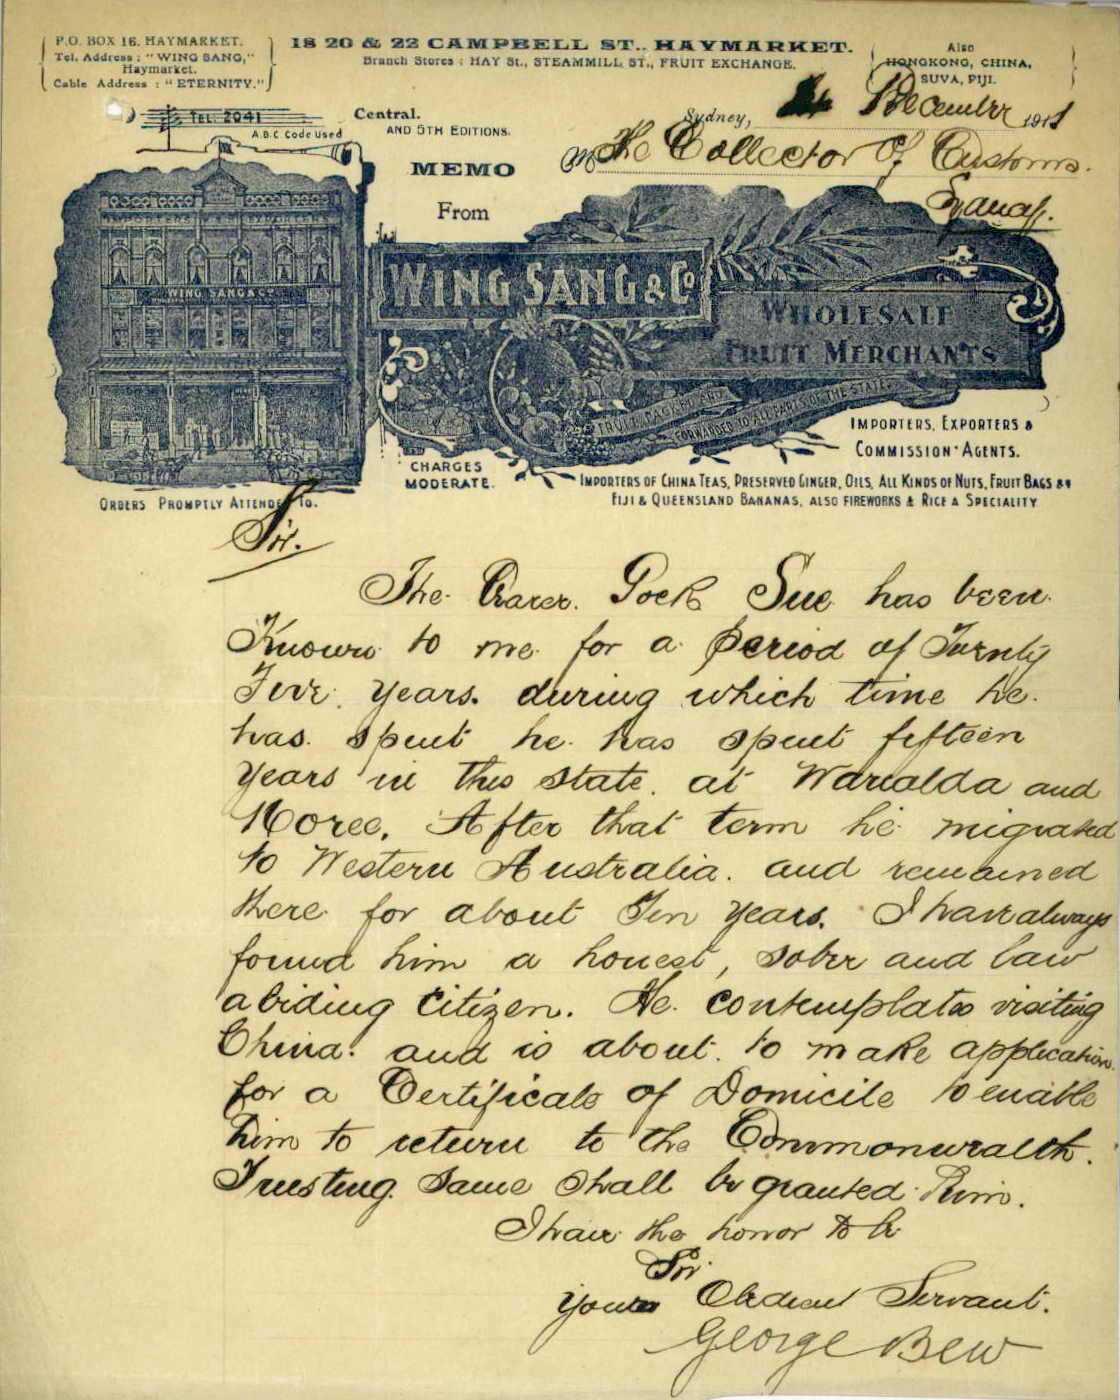 P.O. BOX 16. HAYMARKET.
Tel. Address: "WING SANG,"
Haymarket.
Cable Address: "ETERNITY."
18 20 & 22 CAMPBELL ST., HAYMARKET.
Branch Stores: HAY St., STEAMMILL ST., FRUIT EXCHANGE.
Also
HONGKONG, CHINA,
SUVA, FIJI.
TEL. 2041
Central.
A.B.C Code Used
AND 5TH EDITIONS.
Sydney, December 1911
MEMO
From
M The Collector Of Customs.
Sydney.
WING SANG & Co
WING SANG & Co
WHOLESALE
FRUIT MERCHANTS
FRUIT PACKED AND
FORWARDED TO ALL PARTS OF THE STATE.
IMPORTERS, EXPORTERS &
COMMISSION AGENTS.
CHARGES
MODERATE.
ORDERS PROMPTLY ATTENDED TO.
IMPORTERS OF CHINA TEAS, PRESERVED GINGER, OILS, ALL KINDS OF NUTS, FRUIT BAGS &c
FIJI & QUEENSLAND BANANAS, ALSO FIREWORKS & RICE A SPECIALITY
Sir.
The Bearer. Pock Sue has been
Known to me for a period of Twenty
Five years. during which time he
has spent he has spent fifteen
years in this state. at Warialda and
Moree. After that term he migrated
to Western Australia. and remained
there for about Ten years. I have always
found him a honest, sober and law
abiding citizen. He contemplates visiting
China. and is about to make application
for a Certificate of Domicile to enable
him to return to the Commonwealth.
Trusting same shall be granted him.
I have the honor to be
Sir
Yours Obedient Servant.
George Bew